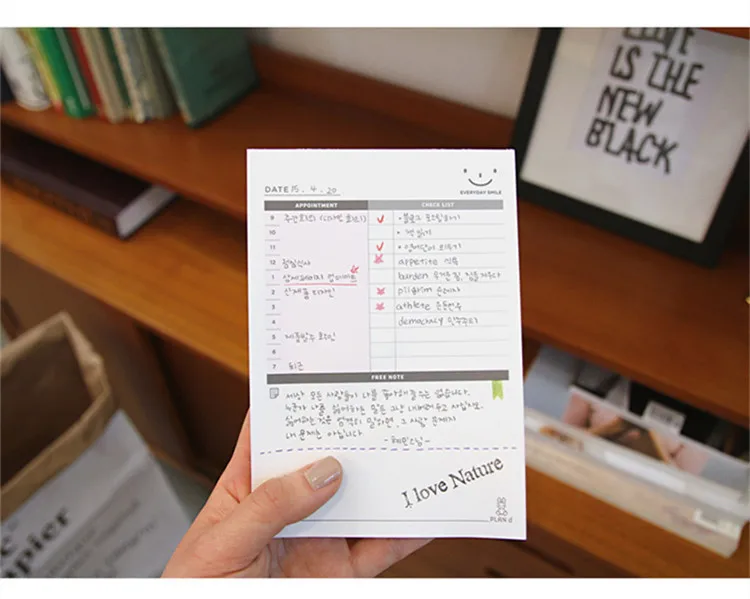 LOVE
IS THE
NEW
BLACK
DATE 15 . 4 . 20
EVERYDAY SMILE
APPOINTMENT
CHECK LIST
9 주간회의 (디자인회의)
10 • 책 읽기
11 • 영어단어 외우기
12 점심식사
appetite 식욕
1 상세페이지 업데이트
burden 무거운 짐, 짐을 지우다
2 신제품 디자인
pilgrim 순례자
3 athlete 운동선수
4 democracy 민주주의
5 제품발주 확인
6
7 퇴근
FREE NOTE
세상 모든 사람들이 나를 좋아해줄 수는 없습니다.
누군가 나를 싫어하는 말은 그냥 내버려두고 사십시오.
싫어하는 것은 엄격히 말하면, 그 사람 문제지
내 문제는 아닙니다 -혜민스님-
I love Nature
PLAN d
pier